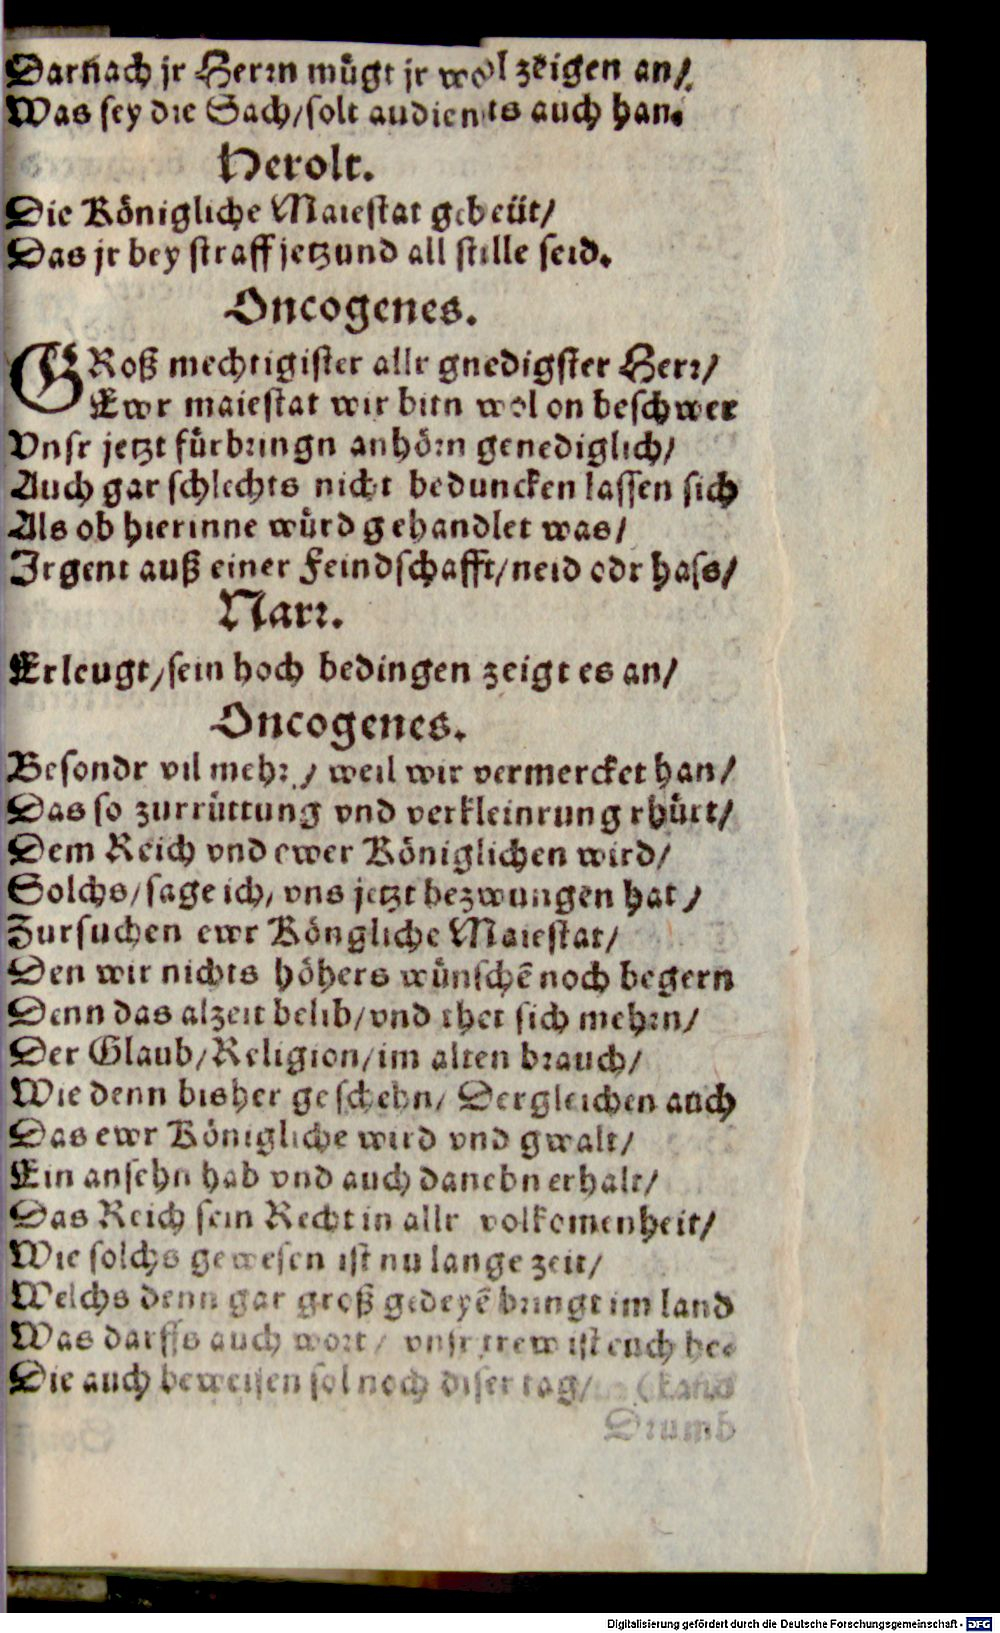 Darnach jr Herrn mügt jr wol zeigen an/
Was sey die Sach/solt audients auch han.
Herolt.
Die Königliche Maiestat gebeüt/
Das jr bey straff jetzund all stille seid.
Oncogenes.
GRoß mechtigister allr gnedigster Herr/
Ewr maiestat wir bitn wol on beschwer
Vnsr jetzt fürbringn anhörn genediglich/
Auch gar schlechts nicht beduncken lassen sich
Als ob hierinne würd gehandlet was/
Irgent auß einer Feindschafft/neid odr hass/
Narr.
Erleugt/sein hoch bedingen zeigt es an/
Oncogenes.
Besondr vil mehr/ weil wir vermercket han/
Das so zurrüttung vnd verkleinrung rhürt/
Dem Reich vnd ewer Königlichen wird/
Solchs/sage ich, vns jetzt bezwungen hat/
Zursuchen ewr Köngliche Maiestat/
Den wir nichts höhers wünschē noch begern
Denn das alzeit belib/vnd thet sich mehrn/
Der Glaub/Religion/im alten brauch/
Wie denn bisher geschehn/ Dergleichen auch
Das ewr Königliche wird vnd gwalt/
Ein ansehn hab vnd auch danebn erhalt/
Das Reich sein Recht in allr volkomenheit/
Wie solchs gewesen ist nu lange zeit/
Welchs denn gar groß gedeyē bringt im land
Was darffs auch wort/ vnsr trew ist euch be-
Die auch beweisen sol noch diser tag/ (kand
Drumb
Digitalisierung gefördert durch die Deutsche Forschungsgemeinschaft - DFG